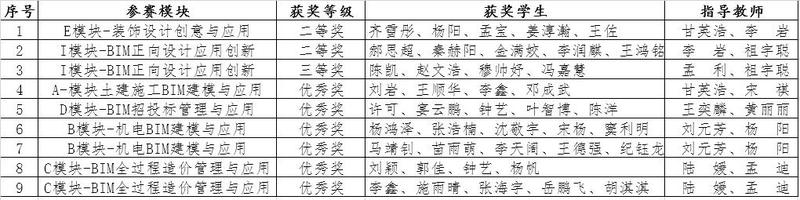 序号 参赛模块 获奖等级 获奖学生 指导教师
1 E模块-装饰设计创意与应用 二等奖 齐雪彤、杨阳、孟宝、姜淳瀚、王佐 甘英浩、李 岩
2 I模块-BIM正向设计应用创新 二等奖 郝思超、秦赫阳、金满姣、李润麒、王鸿铭 李 岩、祖宇聪
3 I模块-BIM正向设计应用创新 三等奖 陈凯、赵文浩、穆帅妤、冯嘉慧 孟 利、祖宇聪
4 A-模块土建施工BIM建模与应用 优秀奖 刘岩、王顺华、李鑫、邓成武 甘英浩、宋 祺
5 D模块-BIM招投标管理与应用 优秀奖 许可、宴云鹏、钟艺、叶智博、陈洋 王奕麟、黄丽丽
6 B模块-机电BIM建模与应用 优秀奖 杨鸿泽、张浩楠、沈敬宇、宋杨、窦利明 刘元芳、杨 阳
7 B模块-机电BIM建模与应用 优秀奖 马靖钊、苗雨萌、李天阔、王德强、纪钰龙 刘元芳、杨 阳
8 C模块-BIM全过程造价管理与应用 优秀奖 刘颖、郭佳、钟艺、杨帆 陆 媛、孟 迪
9 C模块-BIM全过程造价管理与应用 优秀奖 李鑫、施雨晴、张海宇、岳鹏飞、胡淇淇 陆 媛、孟 迪